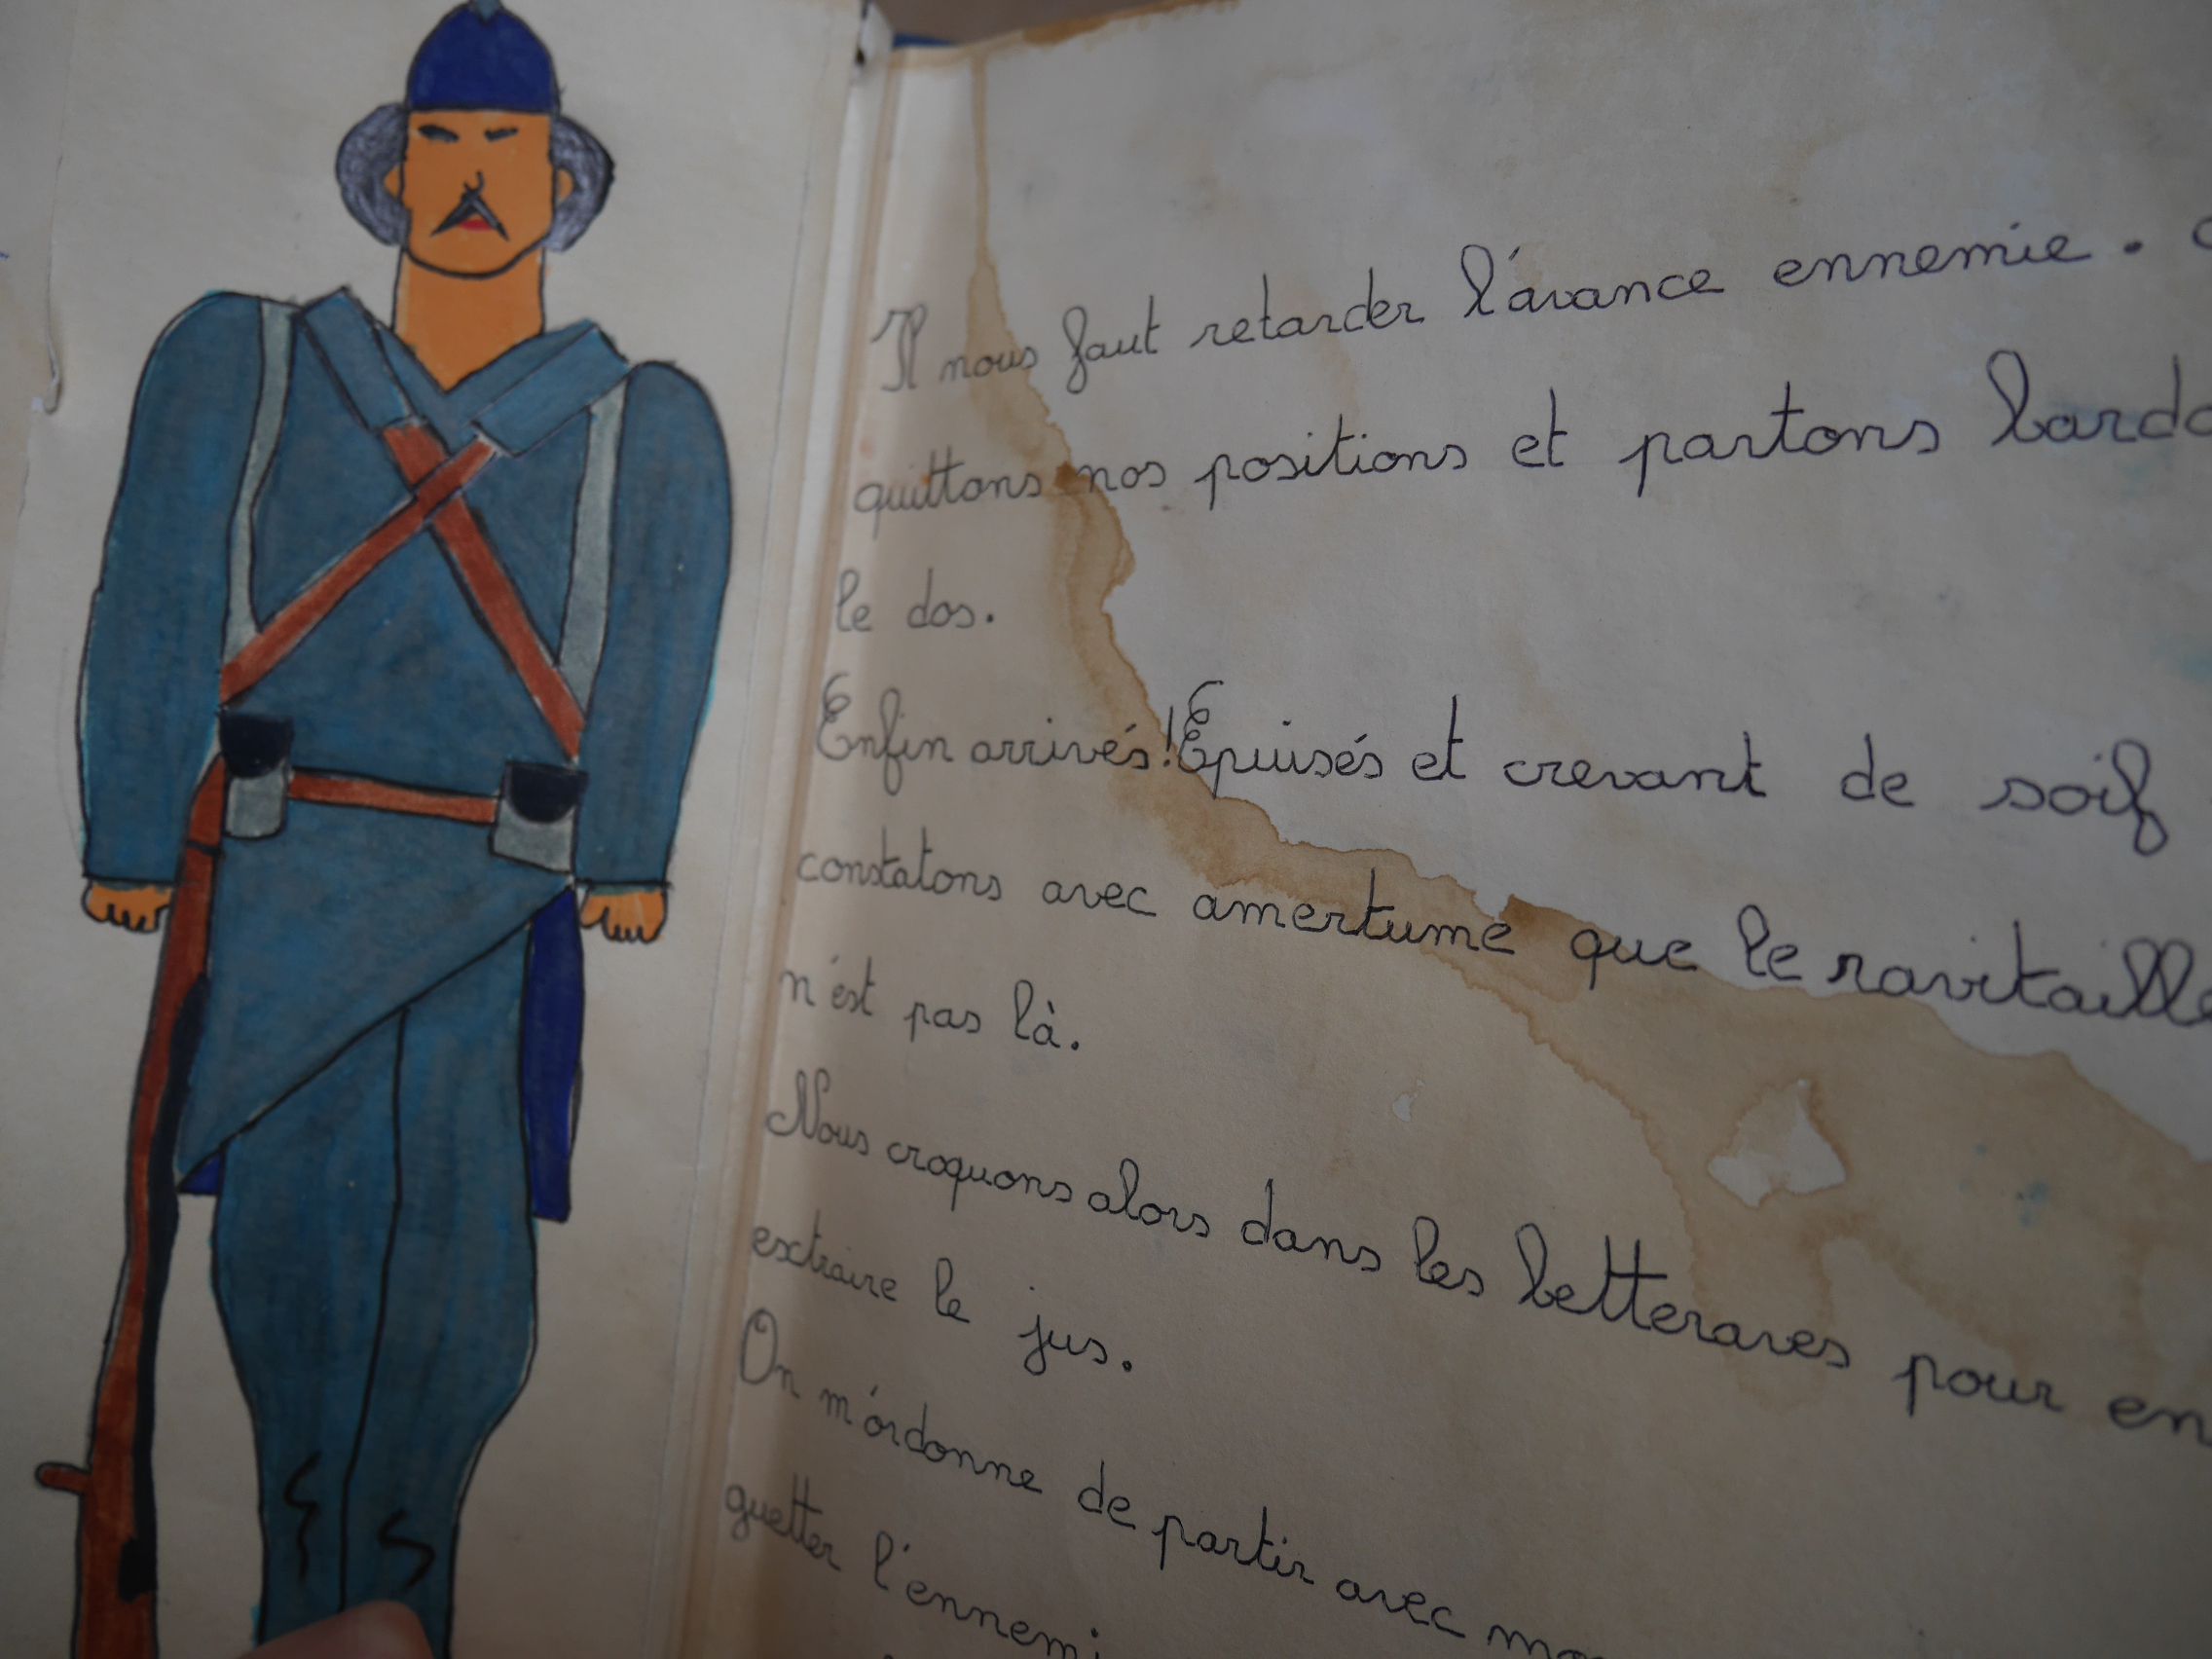 Il nous faut retarder l'avance ennemie.
quittons nos positions et partons
le dos.
Enfin arrivés! Epuisés et crevant de soif
constatons avec amertume que le
n'est pas là.
Nous croquons alors dans les betteraves pour en
extraire le jus.
On m'ordonne de partir avec
guetter l'ennemi